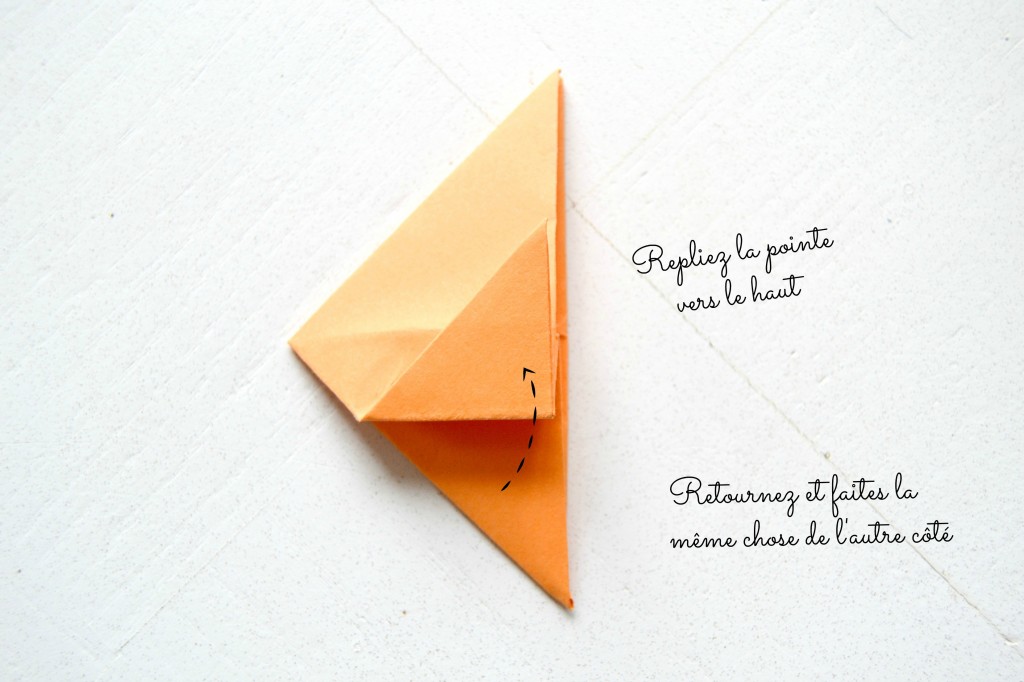 Repliez la pointe
vers le haut
Retournez et faites la
même chose de l'autre côté